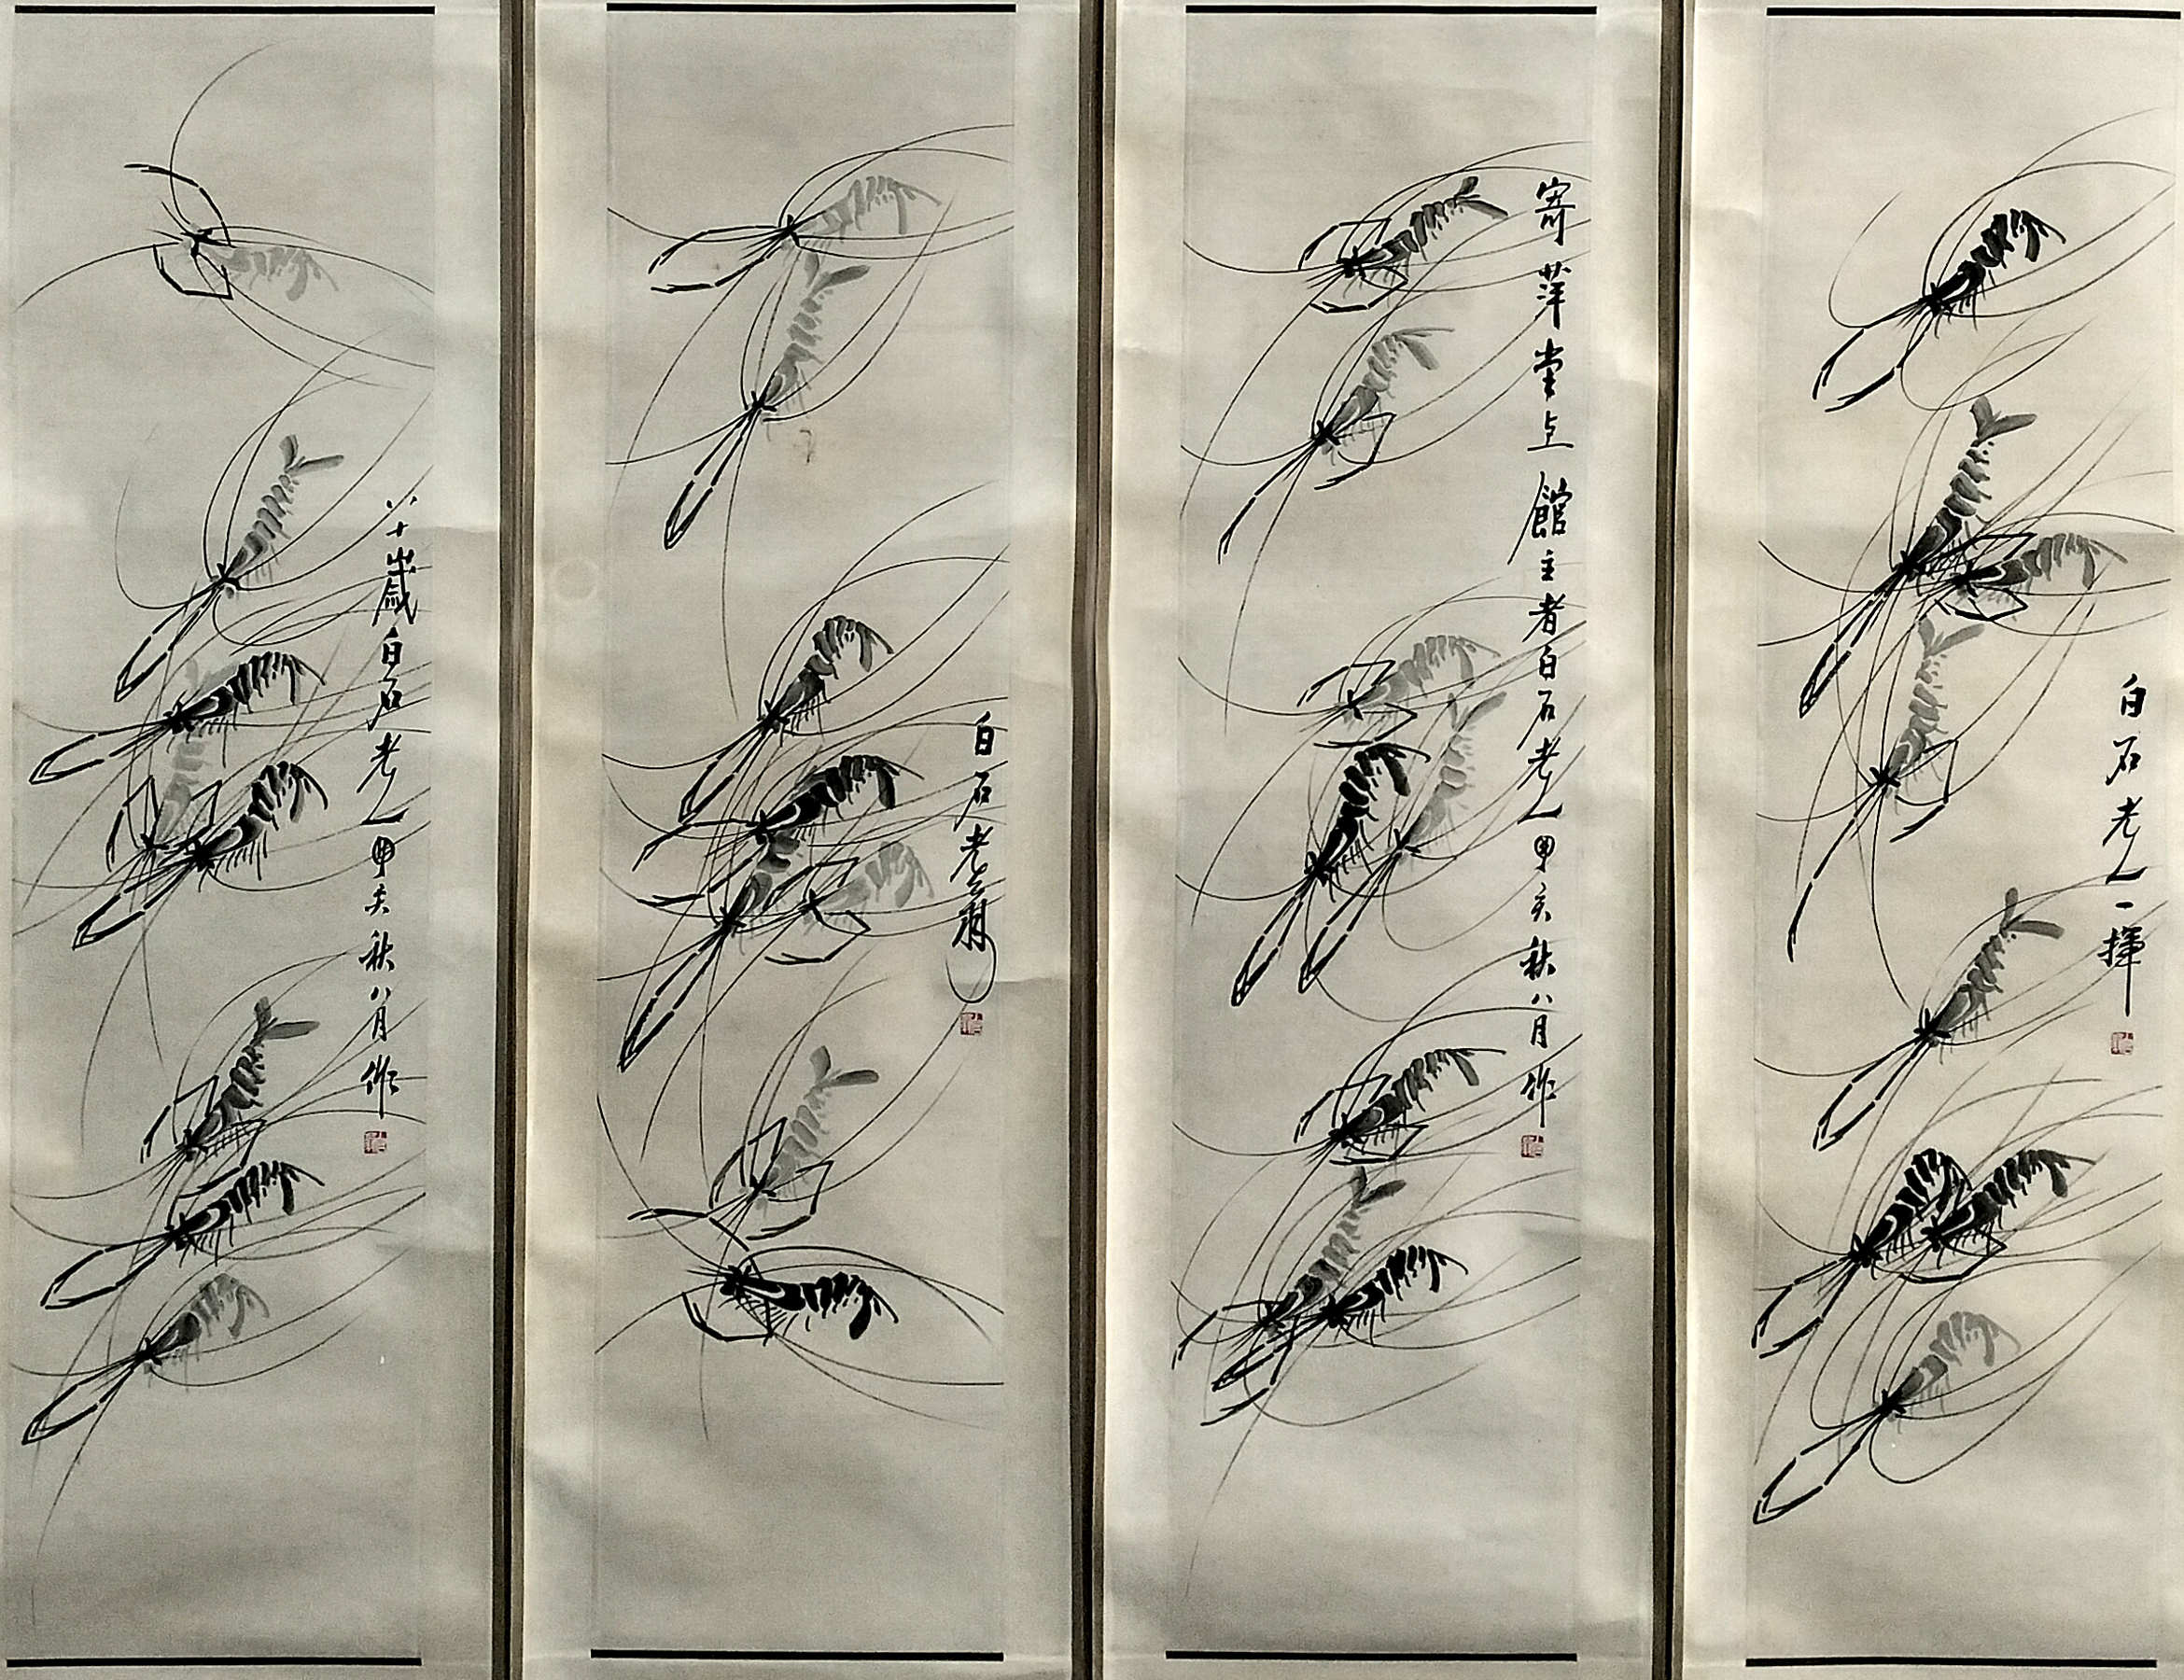 白石老人一揮
寄萍堂上館主者白石老人甲亥秋八月作
白石老翁
八十歲白石老人甲亥秋八月作